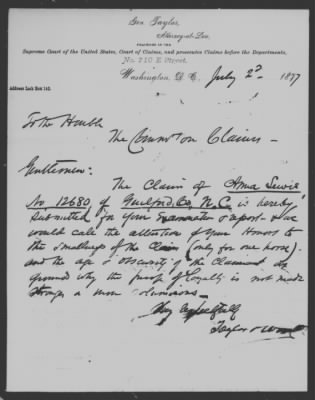 Geo. Taylor,
Attorney-at-Law,
PRACTICES IN THE
Supreme Court of the United States, Court of Claims, and prosecutes Claims before the Departments,
No. 710 E Street.
Washington, D. C. July 2d 1877
Address Lock Box 142.
To the Honble
The Comms on Claims -
Gentlemen:
The Claim of Anna Lewis
No 12680, of Guilford Co, N.C. is hereby
Submitted, for your Examination & report - & we
would call the attention of your Honors to
the smallness of the Claim (only for one horse).
and the age & obscurity of the Claimant as
ground why the proof of loyalty is not made
through a more
Very respectfully
Taylor & Wood